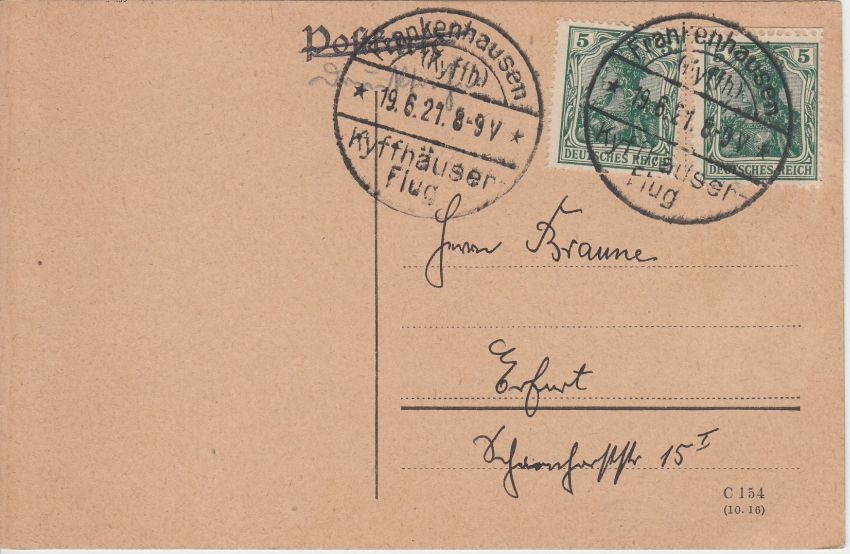 Postkarte
Drucksache
Frankenhausen
(Kyffh.)
* 19.6.21. 8-9 V *
Kyffhäuser-
Flug
5
DEUTSCHES REICH
5
DEUTSCHES REICH
Frankenhausen
(Kyffh.)
* 19.6.21. 8-9 V *
Kyffhäuser-
Flug
Herrn Braune
Erfurt
Scharnhorststr 15 I
C 154
(10. 16)